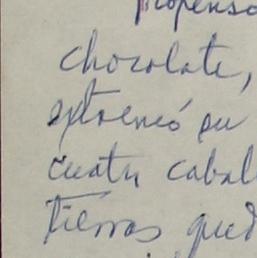 propenso
chocolate,
extrenió su
cuatro cabal
tierras qued